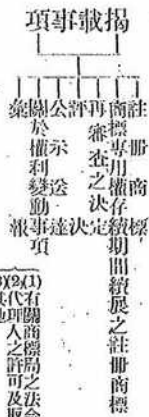 揭載事項
註冊商標
商標專用權存續期間續展之註冊商標
再審查之決定
評決
公示送達
關於權利變動事項
彙報
(1)有關商標局之法令
(2)代理人之許可及取
(3)